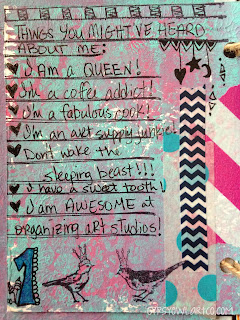 THINGS YOU MIGHT'VE HEARD
ABOUT ME:
I AM A QUEEN!
I'm a coffee addict!
I'm a fabulous cook!
I'm an art supply junkie!
Don't wake the
sleeping beast!!!
I have a sweet tooth!
I am AWESOME at
organizing ART STUDIOS!
1